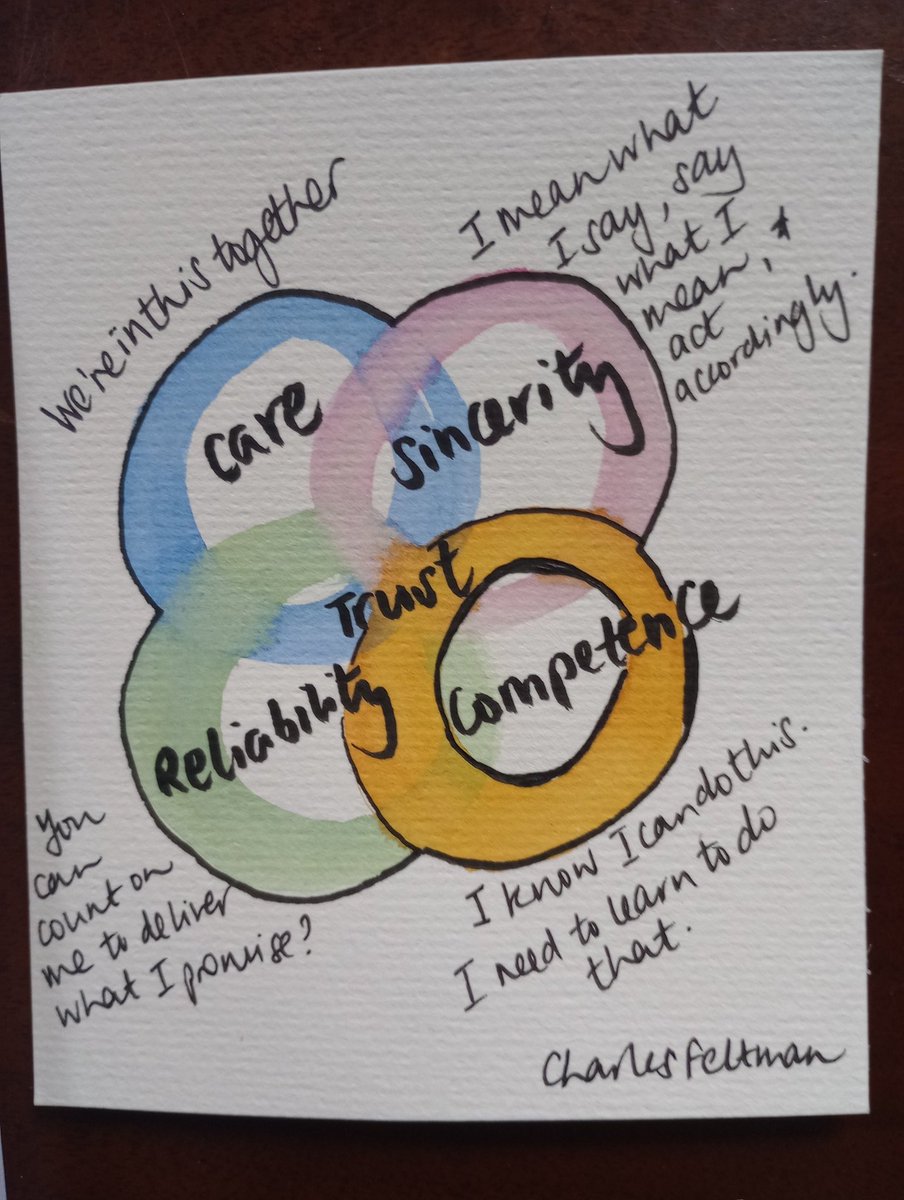 We're in this together
I mean what
I say, say
what I
mean, +
act
accordingly.
care
sincerity
Trust
Reliability
Competence
You
can
count on
me to deliver
what I promise?
I know I can do this.
I need to learn to do
that.
Charles Feltman